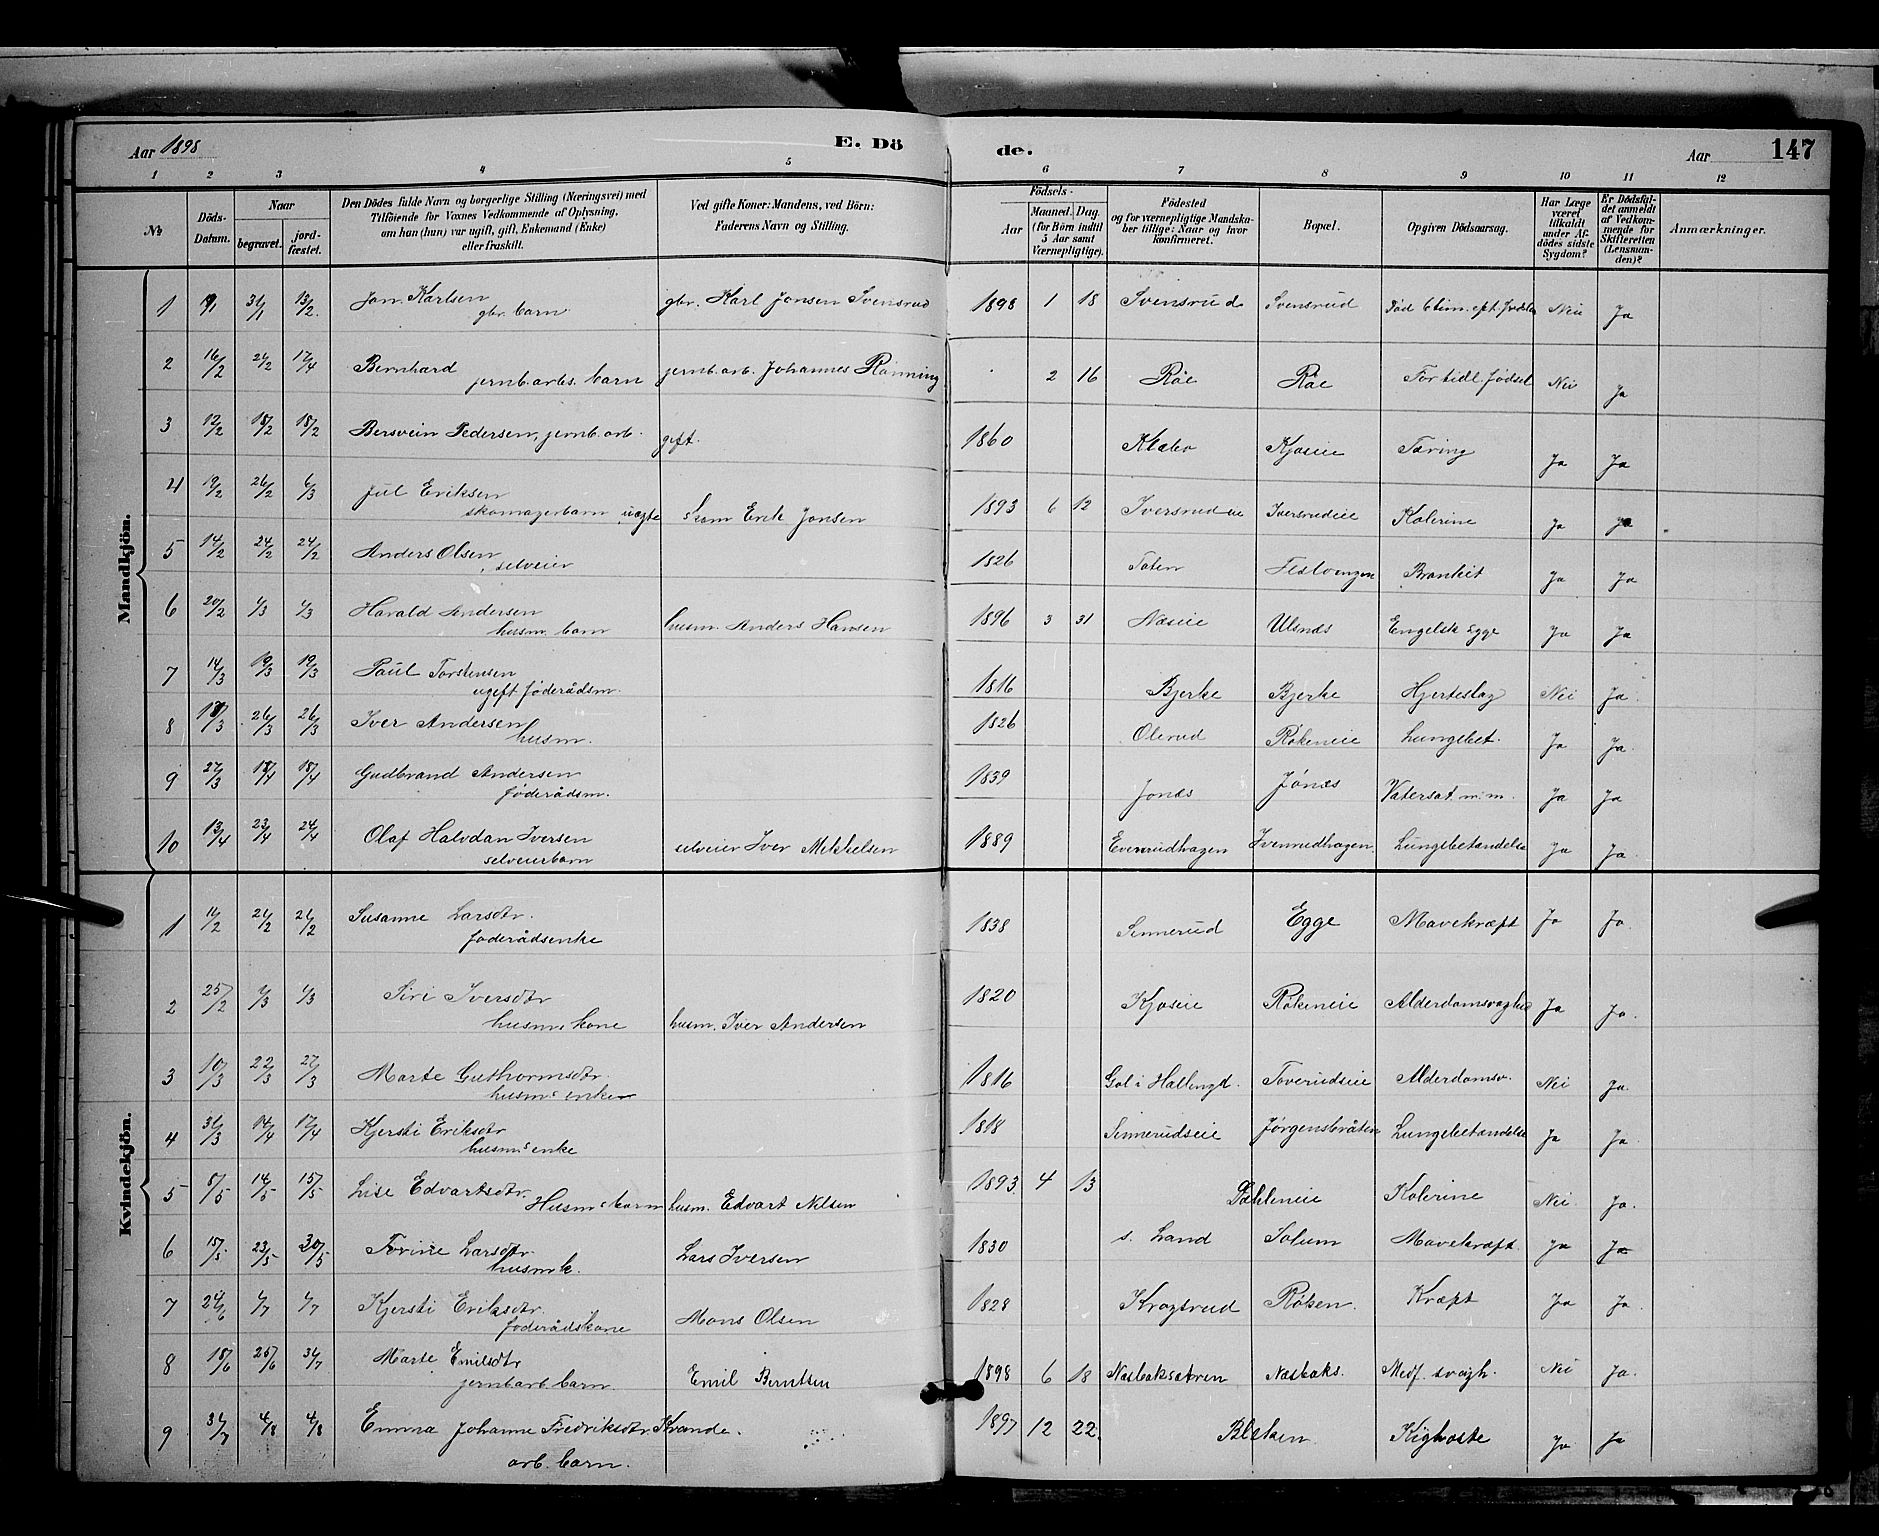 Aar 1898 E. Dö de. Aar 147
1 2 3 4 5 6 7 8 9 10 11 12
№ Döds-Datum. Naar begravet. jord-fæstet. Den Dödes fulde Navn og borgerlige Stilling (Næringsvei) med Tilföiende for Voxnes Vedkommende af Oplysning, om han (hun) var ugift, gift, Enkemand (Enke) eller fraskilt. Ved gifte Koner: Mandens, ved Börn: Faderens Navn og Stilling. Födsels- Aar Maaned. Dag. (for Börn indtil 5 Aar samt Værnepligtige). Födested og for værnepligtige Mandskaber tillige: Naar og hvor konfirmeret. Bopæl. Opgiven Dödsaarsag. Har Læge været tilkaldt under Afdödes sidste Sygdom? Er Dödsfaldet anmeldt af Vedkommende for Skifteretten (Lensmanden)? Anmærkninger.
Mandkjön.
1 31/1 13/2. Jon Karlsen gbr. Karl Jonsen Svensrud 1898 1 18 Svensrud Svensrud Nei Ja
gbr. barn
2 16/2 24/2 17/4 Bernhard jernb. arb. Johannes Rønning 2 16 Røe Røe For tidl. fødsel Nei Ja
jernb. arbs. barn
3 12/2 18/2 18/2 Bersvein Pedersen, jernb. arb. gift. 1860 Klæbo Kjoseie Tæring Ja Ja
4 19/2 26/2 6/3 Jul Eriksen 1893 6 12 Iversrudeie Iversrudeie Kolerine Ja Ja
skomagerbarn uægte skom Erik Jonsen
5 14/2 24/2 24/2 Anders Olsen 1826 Toten Brankit Ja Ja
selveier
6 20/2 4/3 4/3 Harald Andersen husm. Anders Hansen 1896 3 31 Næseie Ulsnæs Engelsk syge Ja Ja
husm. barn
7 14/3 19/3 19/3 Paul Torstensen 1816 Bjerke Bjerke Hjerteslag Nei Ja.
ugift føderådsm.
8 26/3 26/3 Iver Andersen 1826 Olerud Røkeneie Lungebet. Ja Ja.
husm.
9 27/3 18/4 18/4 Gudbrand Andersen 1839 Jonæs Jonæs Vatersot m.m. Ja Ja
føderådsm.
10 13/4 23/4 24/4 Olaf Halvdan Iversen selveier Iver Mikkelsen 1889 Evenrudhagen Ivenrudhagen Lungebetændelse Ja Ja.
selveierbarn
Kvindekjön.
1 11/2 21/2 21/2 Susanne Larsdtr. 1838 Sinnerud Egge Mavekræft Ja Ja.
føderådsenke
2 25/2 4/3 4/3 Siri Iversdtr 1820 Kjoseie Røkeneie Alderdomsvaghed Ja Ja.
husms kone husm. Iver Andersen
3 10/3 22/3 27/3 Marte Guthormsdtr. 1816 Gol i Hallingd. Toverudseie Alderdomsv. Nei Ja.
husms enke
4 31/3 14/4 17/4 Kjersti Eriksdtr 1818 Sinnerudseie Jørgensbråten Lungebetændelse Ja Ja.
husms enke
5 5/5 14/5 15/5 Lise Edvartsdtr. 1893. 4 13 Dæhleneie Kolerine Nei Ja.
Husms barn husm. Edvart Nilsen
6 15/5 23/5 30/5 Torine Larsdtr. Lars Iversen 1830 s. Land Solum Mavekræft. Ja Ja
husmk.
7 24/6 4/7 4/7 Kjersti Eriksdtr. 1828 Krogtrud Røken. Kræft Ja Ja.
føderådskone Mons Olsen
8 18/6 25/6 31/7 Marte Emilsdtr 1898 6 18 Næsbaksætren Næsbaks. Medf. svagh. Nei Ja.
jernb arb. barn. Emil Berntsen
9 31/7 4/8 4/8 Emma Johanne Fredriksdtr. Kvande. 1897 12 22. Blekken Kighoste Ja Ja
arb. barn.